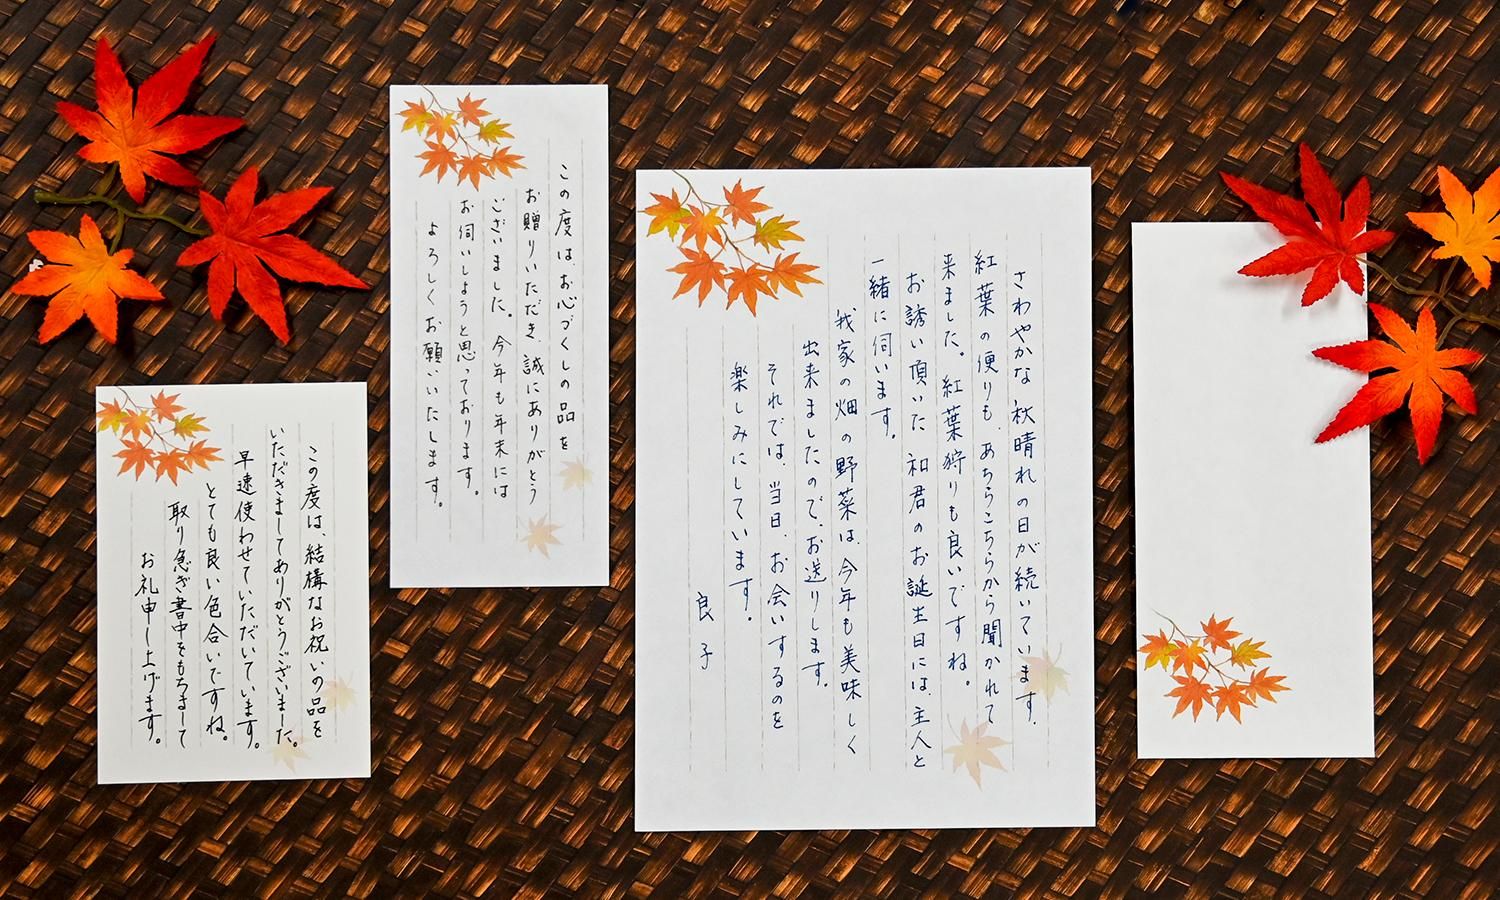 この度は、結構なお祝いの品を
いただきましてありがとうございました。
早速使わせていただいています。
とても良い色合いですね。
取り急ぎ書中をもちまして
お礼申し上げます。
この度は、お心づくしの品を
お贈りいただき、誠にありがとう
ございました。今年も年末には
お伺いしようと思っております。
よろしくお願いいたします。
さわやかな秋晴れの日が続いています。
紅葉の便りも、あちらこちらから聞かれて
来ました。紅葉狩りも良いですね。
お誘い頂いた和君のお誕生日には、主人と
一緒に伺います。
我家の畑の野菜は、今年も美味しく
出来ましたので、お送りします。
それでは、当日、お会いするのを
楽しみにしています。
良子